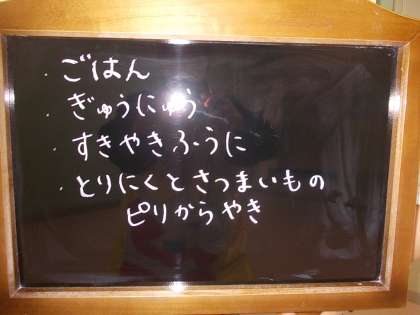 ・ごはん
・ぎゅうにゅう
・すきやきふうに
・とりにくとさつまいもの
ピリからやき